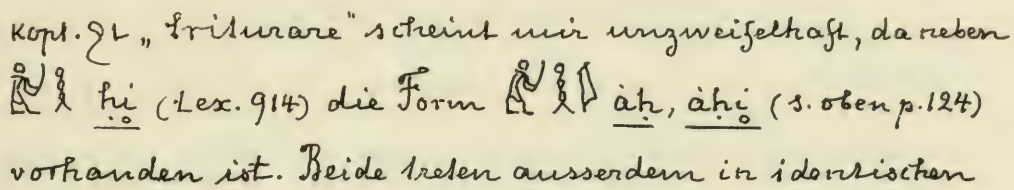 kopt. ϩι „triturare“ scheint mir unzweifelhaft, da neben
ḥị (Lex. 914) die Form àḥ, àḥị (s. oben p. 124)
vorhanden ist. Beide treten ausserdem in identischen